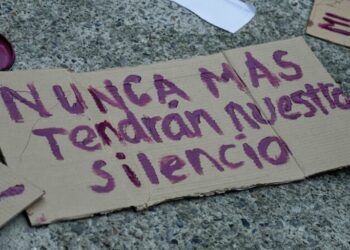 NUNCA MAS
Tendrán nuestro
silencio